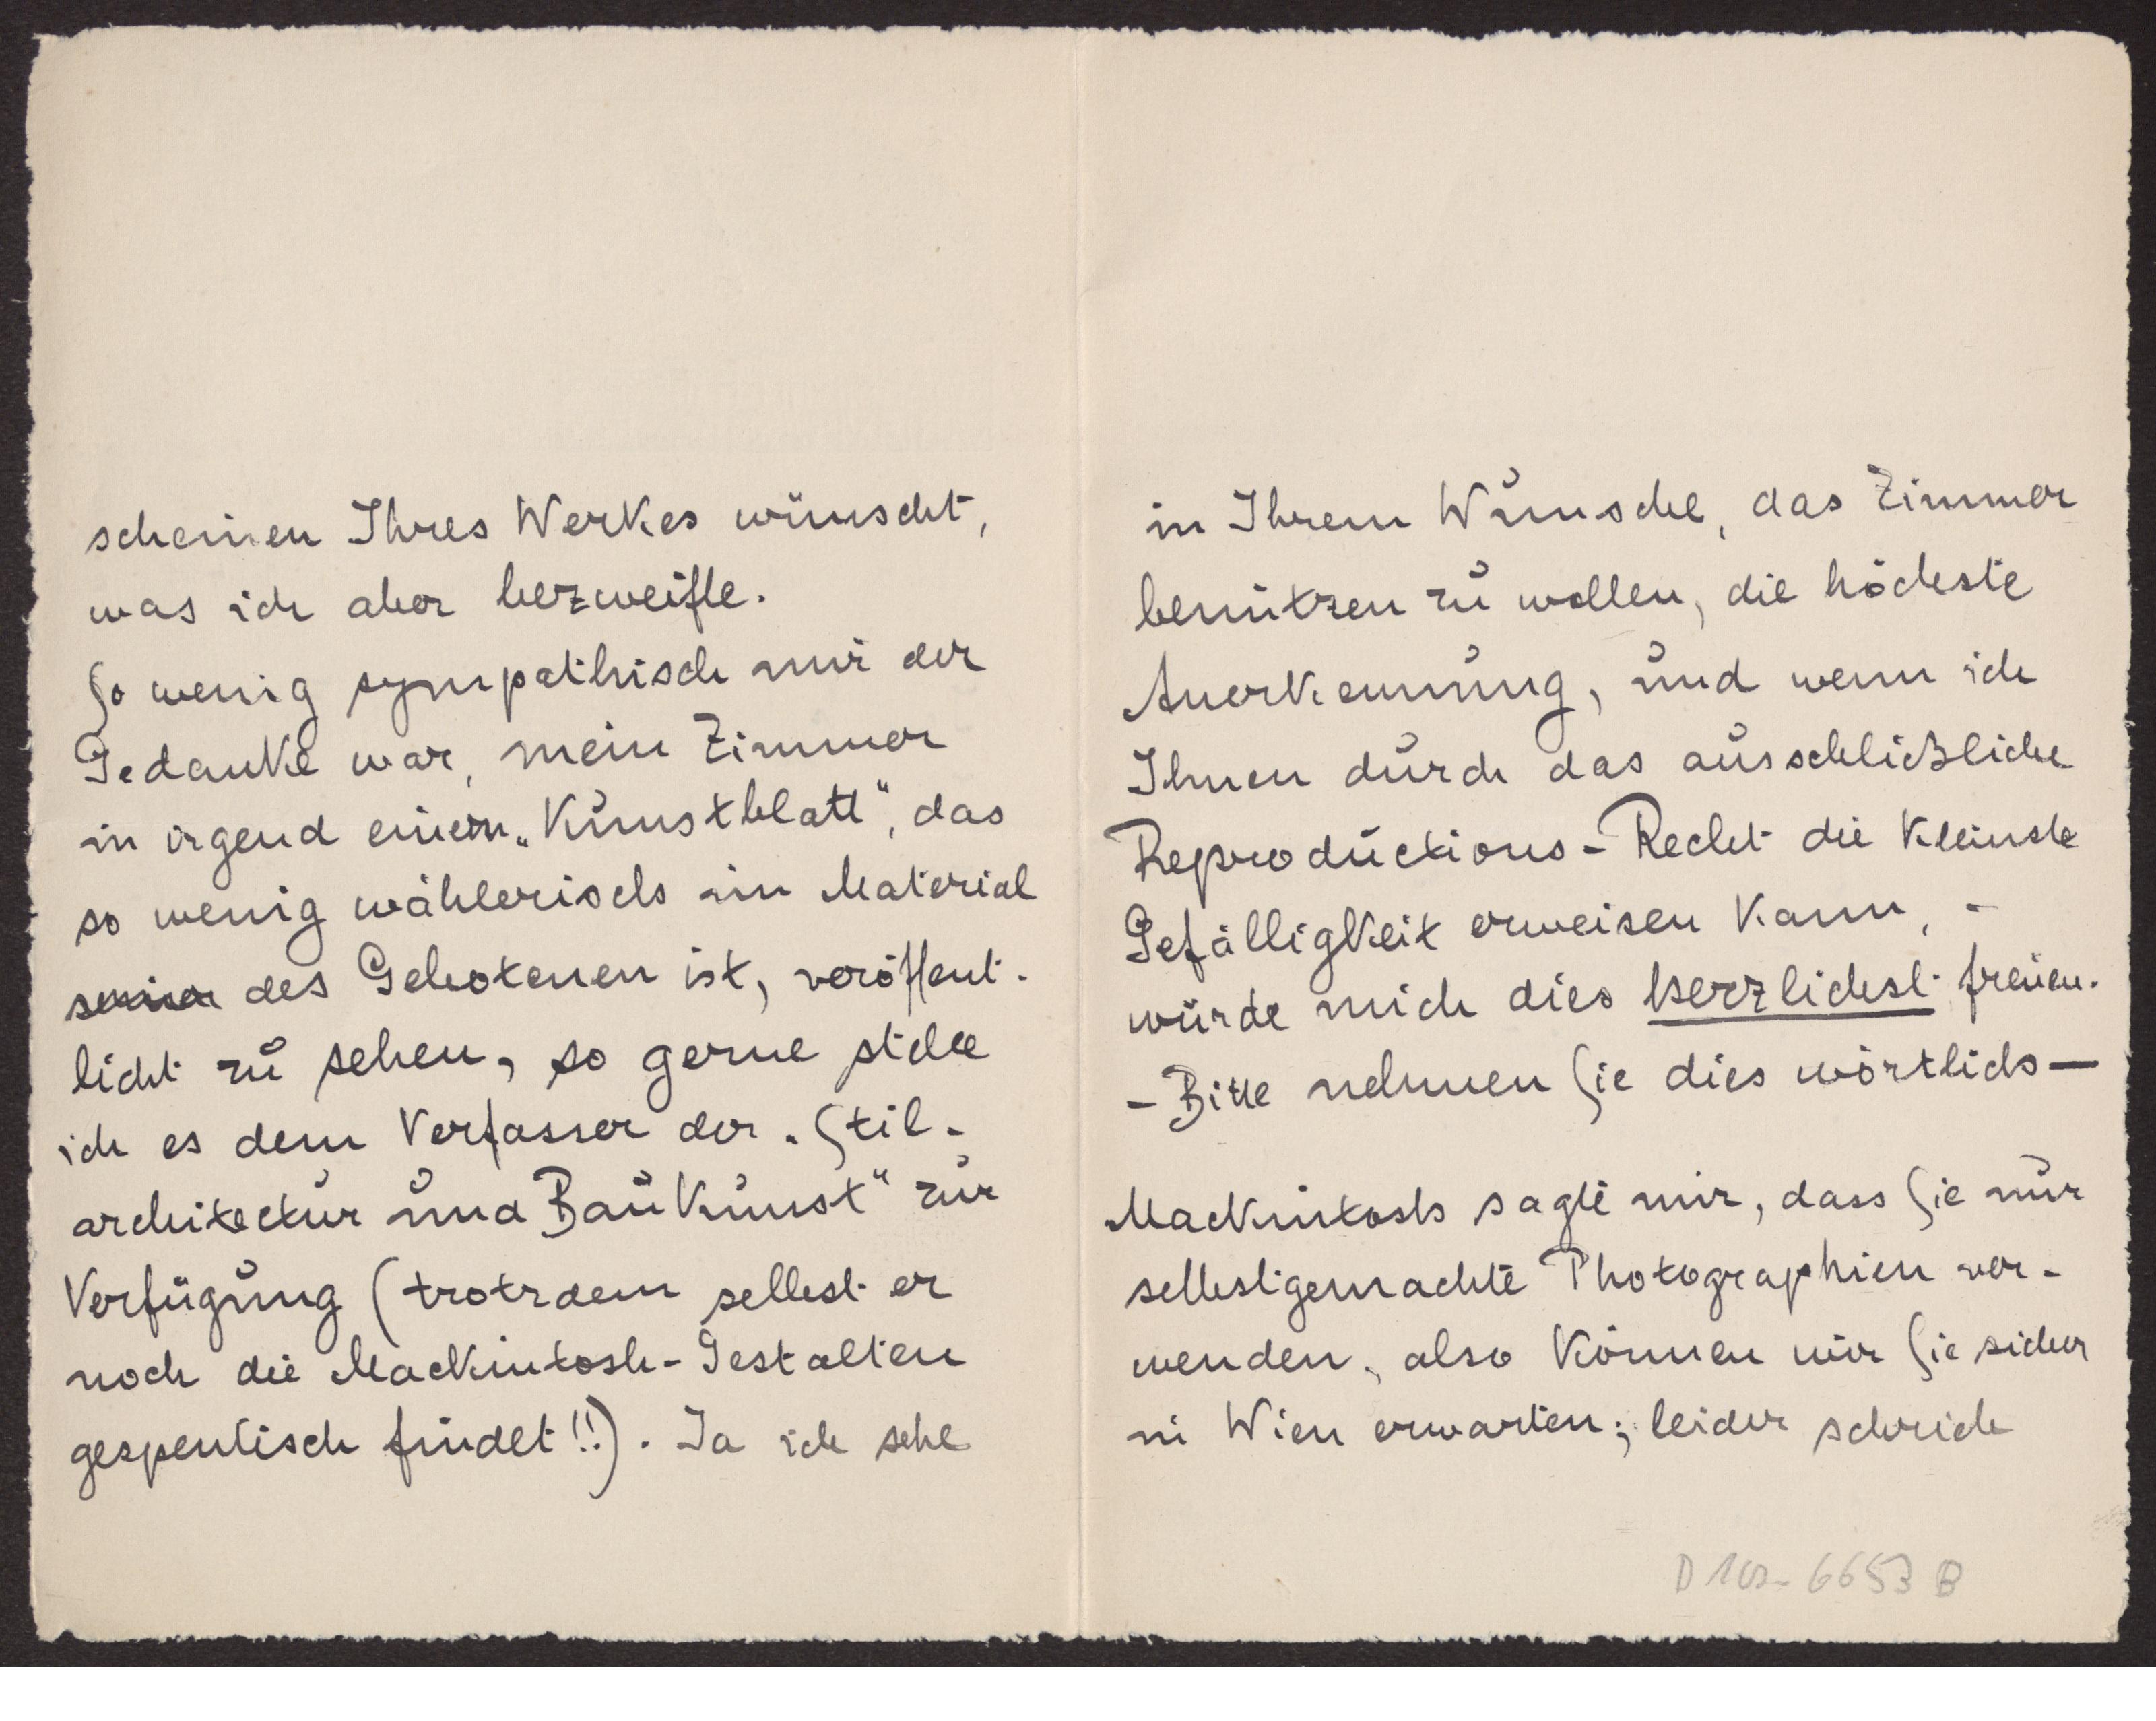 scheinen Ihres Werkes wünscht,
was ich aber bezweifle.
So wenig sympathisch mir der
Gedanke war, mein Zimmer
in irgend einem „Kunstblatt“, das
so wenig wählerisch im Material
des Gebotenen ist, veröffent-
licht zu sehen, so gerne stelle
ich es dem Verfasser der „Stil-
architectur und Baukunst“ zur
Verfügung (trotzdem selbst er
noch die Mackintosh-Gestalten
gespentisch findet!!). Ja ich sehe
in Ihrem Wunsche, das Zimmer
benützen zu wollen, die höchste
Anerkennung, und wenn ich
Ihnen durch das ausschlißliche
Reproductions-Recht die kleinste
Gefälligkeit erweisen kann, -
würde mich dies herzlichst freuen.
- Bitte nehmen Sie dies wörtlich —
Mackintosh sagte mir, dass Sie nur
selbstgemachte Photographien ver-
wenden, also können wir Sie sicher
in Wien erwarten; leider schrieb
6653 B